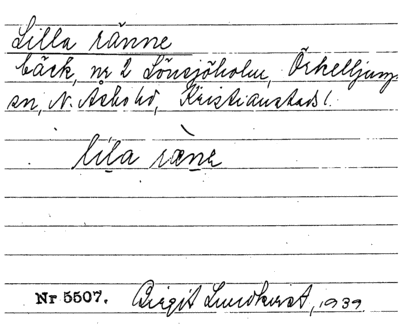 Lilla ränne
bäck, nr 2 Lönsjöholm, Örkelljunga
sn, N. Åsbo hd, Kristianstads l.
lila ræne
Nr 5507. Birgit Lundkvist, 1939.